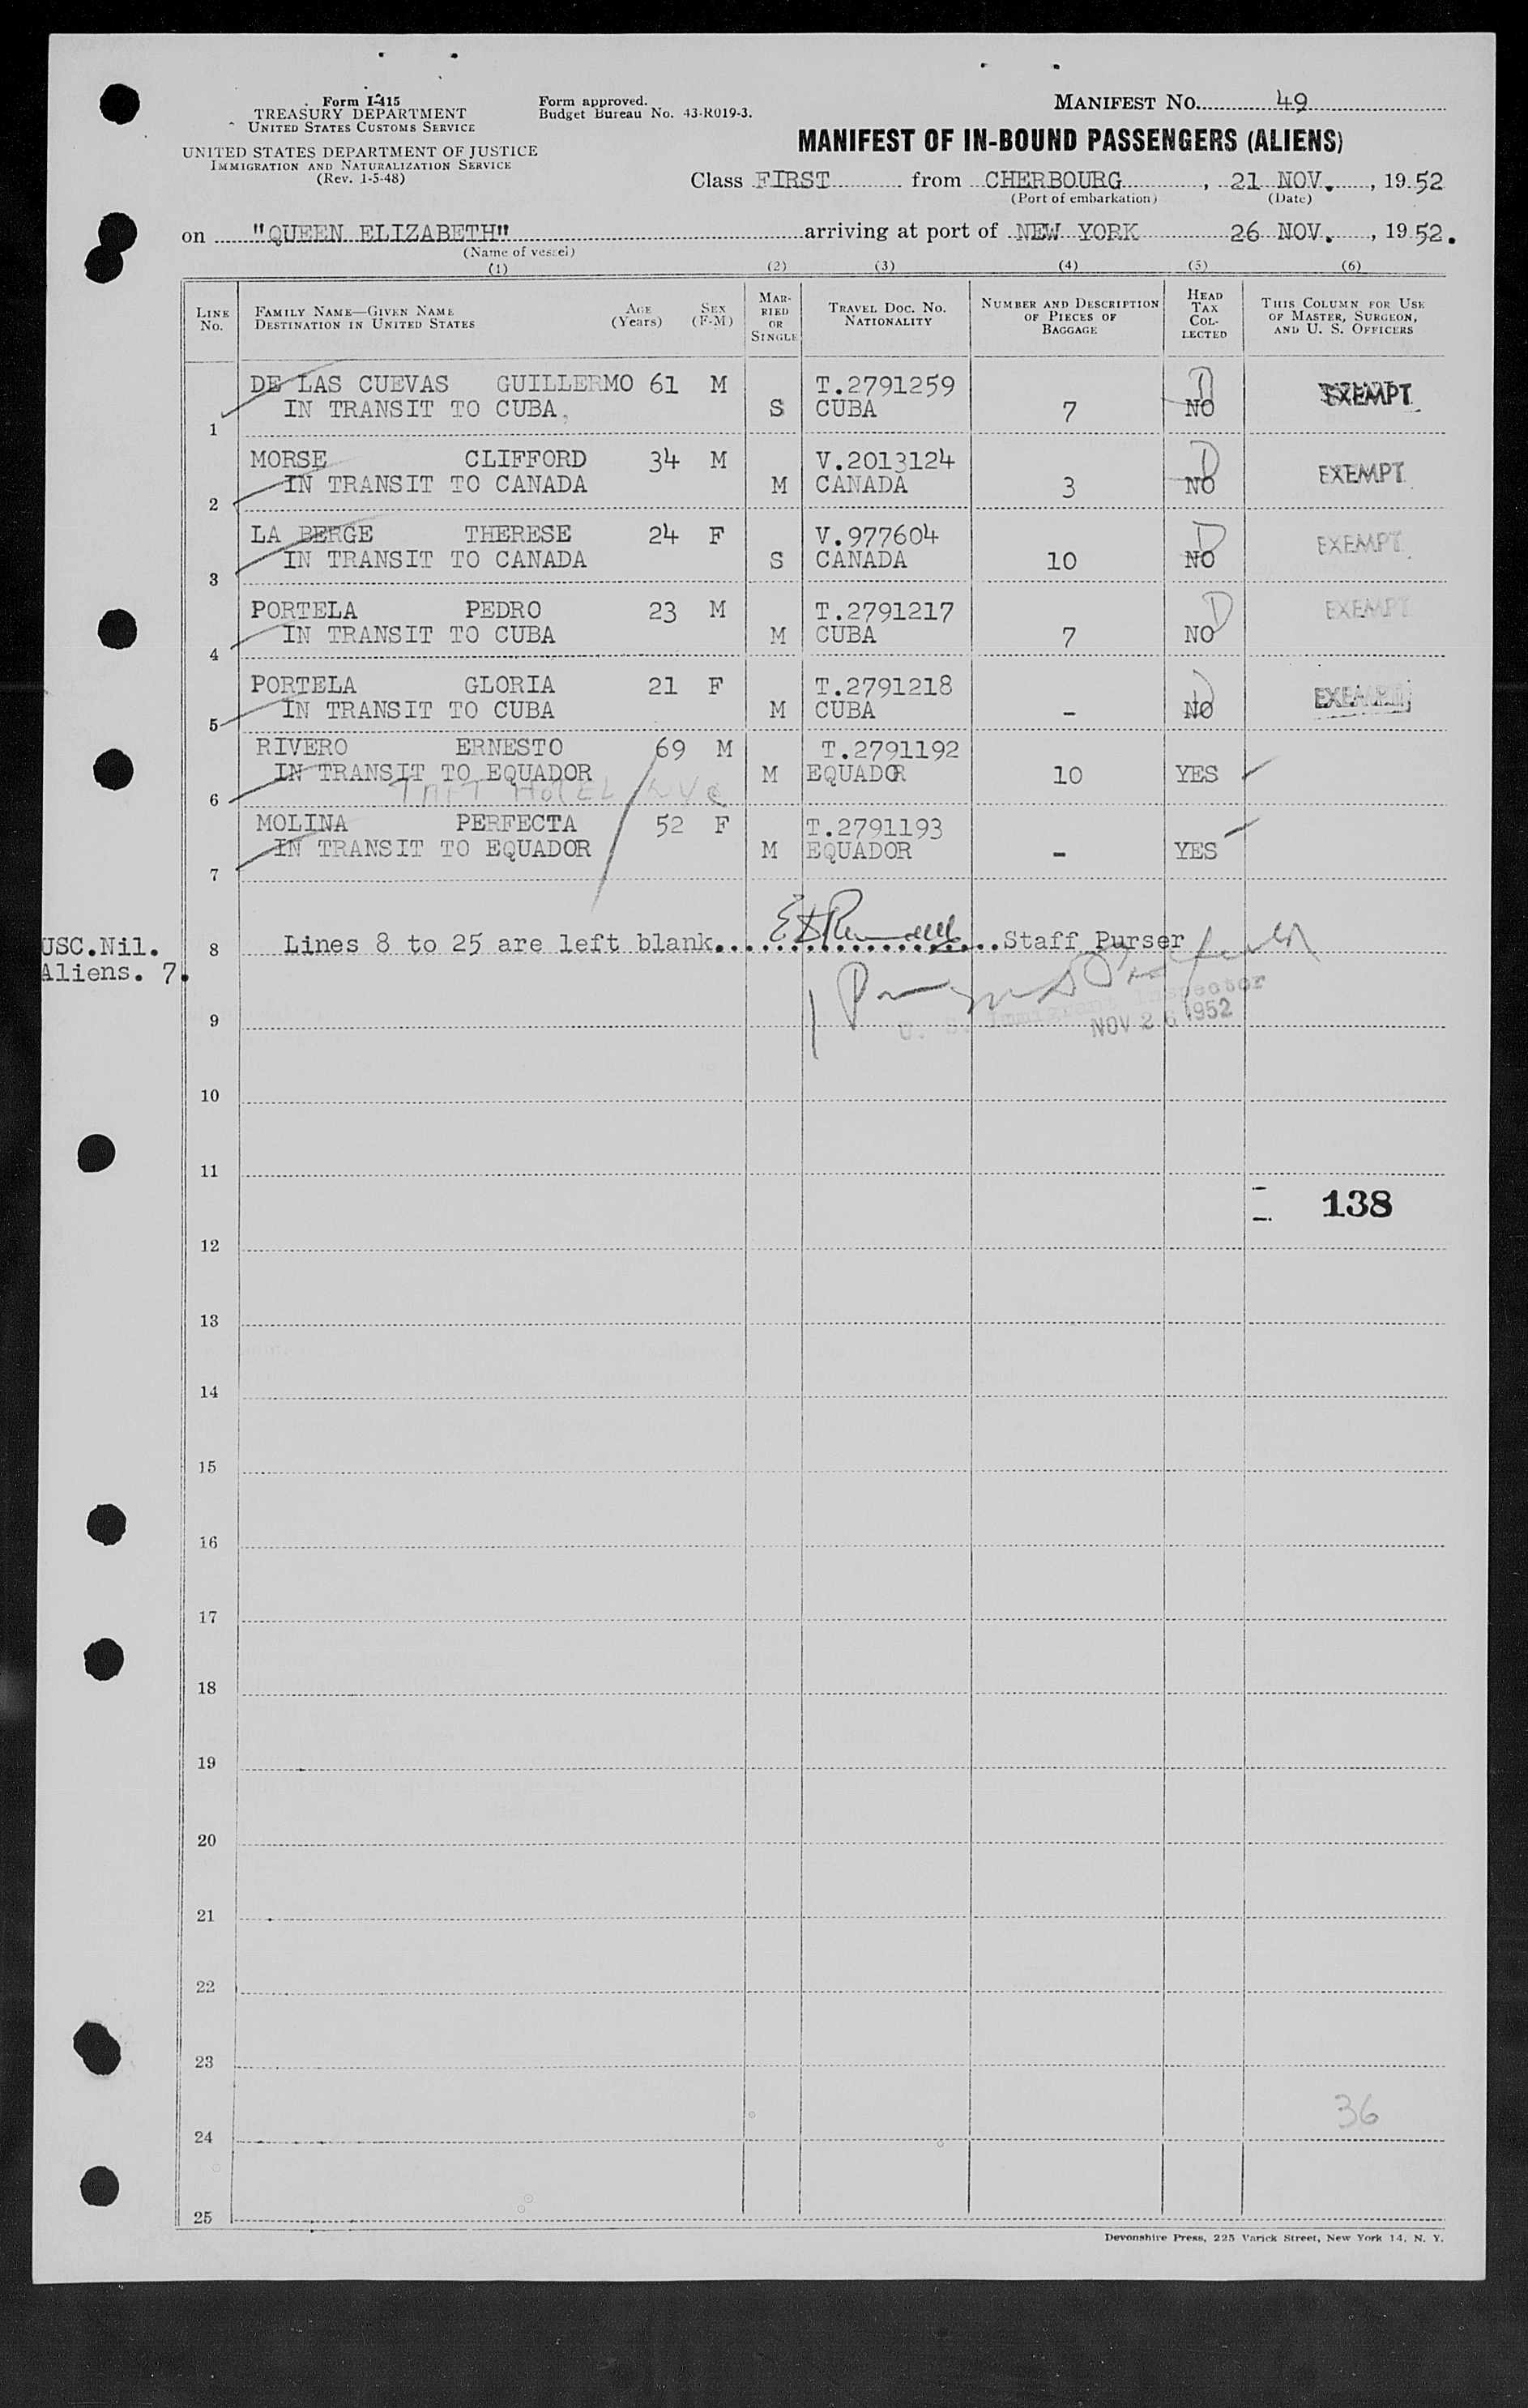 Form I-415
TREASURY DEPARTMENT
UNITED STATES CUSTOMS SERVICE
UNITED STATES DEPARTMENT OF JUSTICE
IMMIGRATION AND NATURALIZATION SERVICE
(Rev. 1-5-48)
Form approved.
Budget Bureau No. 43-R019-3.
MANIFEST NO. 49
MANIFEST OF IN-BOUND PASSENGERS (ALIENS)
Class FIRST from CHERBOURG, 21 NOV., 19 52
(Port of embarkation) (Date)
on "QUEEN ELIZABETH" arriving at port of NEW YORK 26 NOV., 19 52.
(Name of vessel)
(1) (2) (3) (4) (5) (6)
LINE NO. FAMILY NAME—GIVEN NAME DESTINATION IN UNITED STATES AGE (Years) SEX (F-M) MARRIED OR SINGLE TRAVEL DOC. NO. NATIONALITY NUMBER AND DESCRIPTION OF PIECES OF BAGGAGE HEAD TAX COLLECTED THIS COLUMN FOR USE OF MASTER, SURGEON, AND U. S. OFFICERS
DE LAS CUEVAS GUILLERMO 61 M T.2791259 D EXEMPT
1 IN TRANSIT TO CUBA, S CUBA 7 NO
MORSE CLIFFORD 34 M V.2013124 D EXEMPT
2 IN TRANSIT TO CANADA M CANADA 3 NO
LA BERGE THERESE 24 F V.977604 D EXEMPT
3 IN TRANSIT TO CANADA S CANADA 10 NO
PORTELA PEDRO 23 M T.2791217 D EXEMPT
4 IN TRANSIT TO CUBA M CUBA 7 NO
PORTELA GLORIA 21 F T.2791218 D EXEMPT
5 IN TRANSIT TO CUBA M CUBA - NO
RIVERO ERNESTO 69 M T.2791192
6 IN TRANSIT TO EQUADOR M EQUADOR 10 YES
TAFT HOTEL NYC
MOLINA PERFECTA 52 F T.2791193
7 IN TRANSIT TO EQUADOR M EQUADOR - YES
USC.Nil.
Aliens. 7.
8 Lines 8 to 25 are left blank. Staff Purser
U. S. Immigrant Inspector
NOV 26 1952
9
10
11
138
12
13
14
15
16
17
18
19
20
21
22
23
36
24
25
Devonshire Press, 225 Varick Street, New York 14, N. Y.